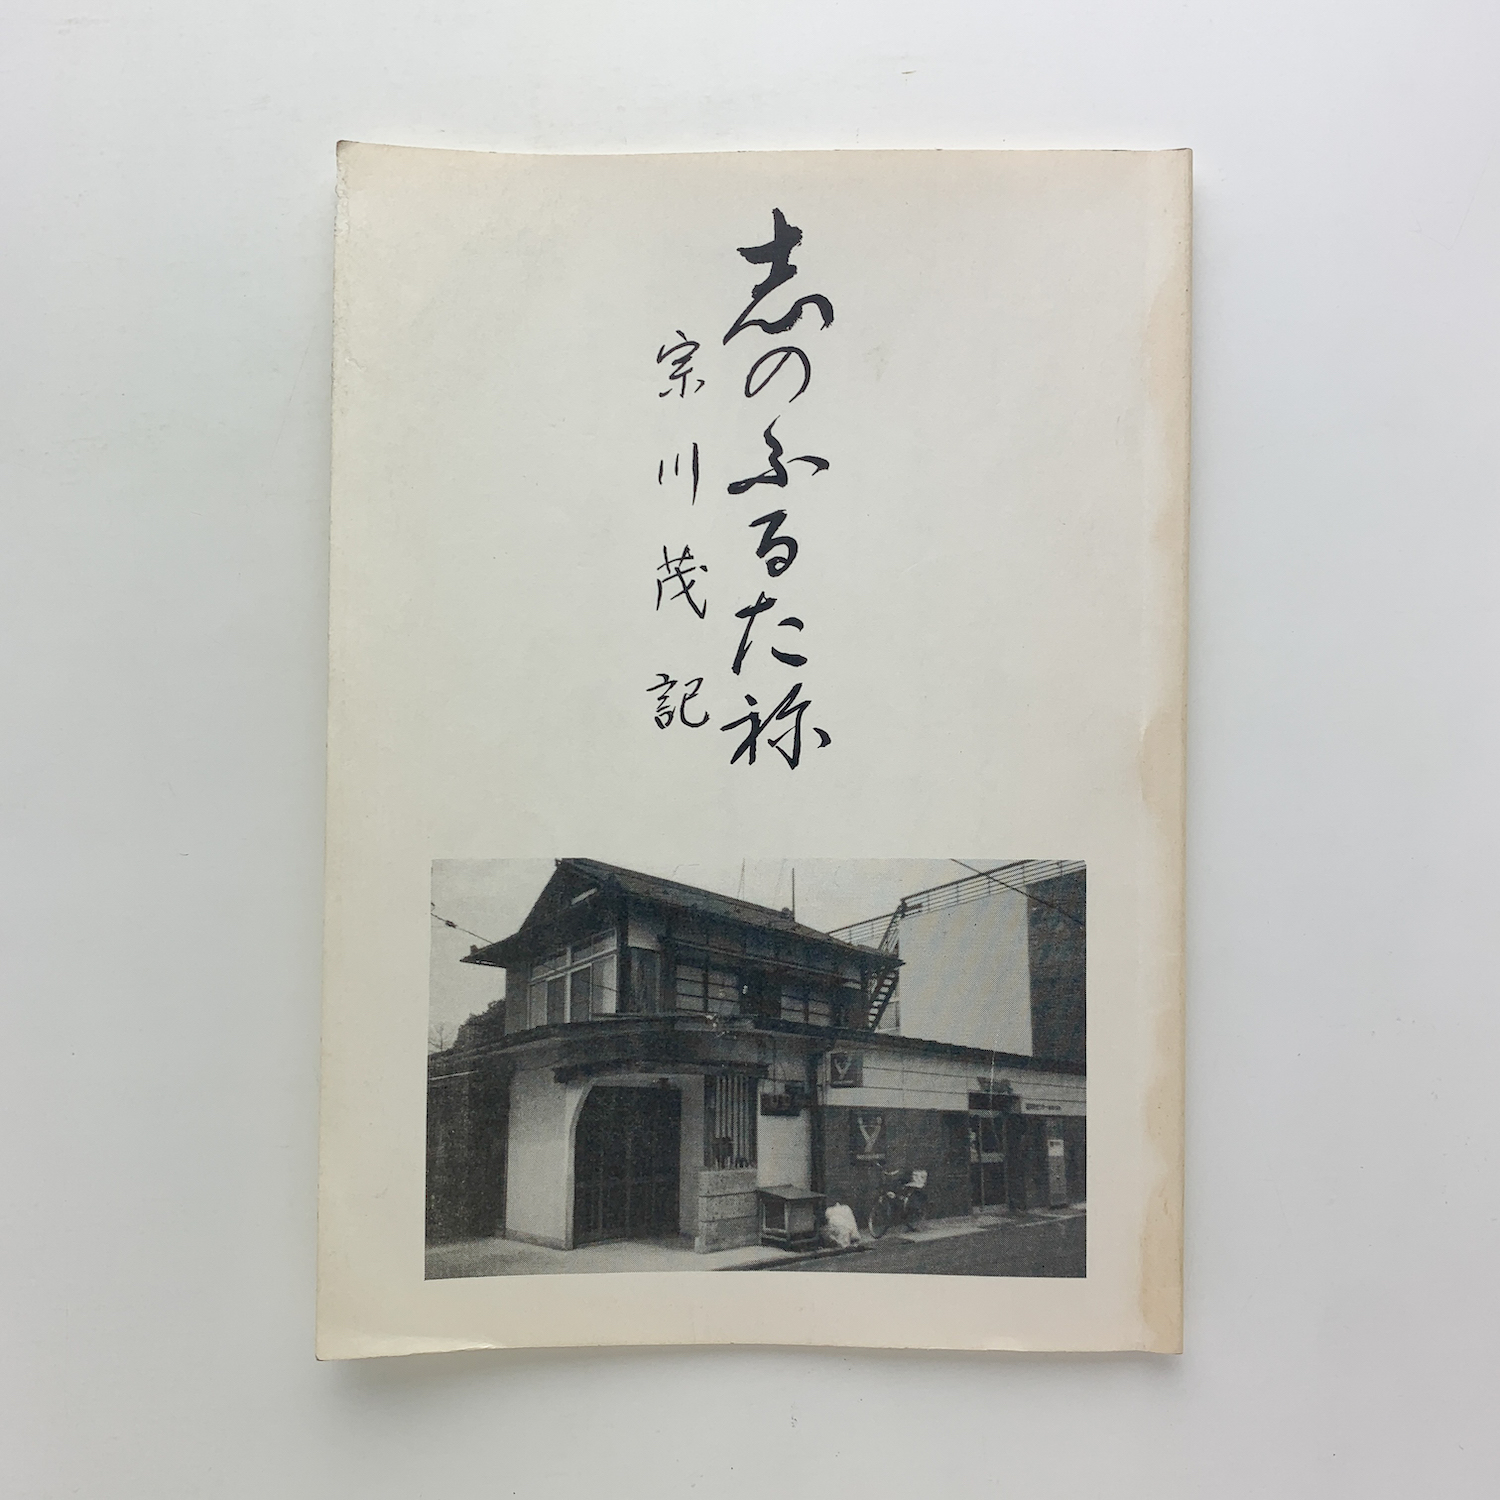 志のふるた祢
宗川茂記